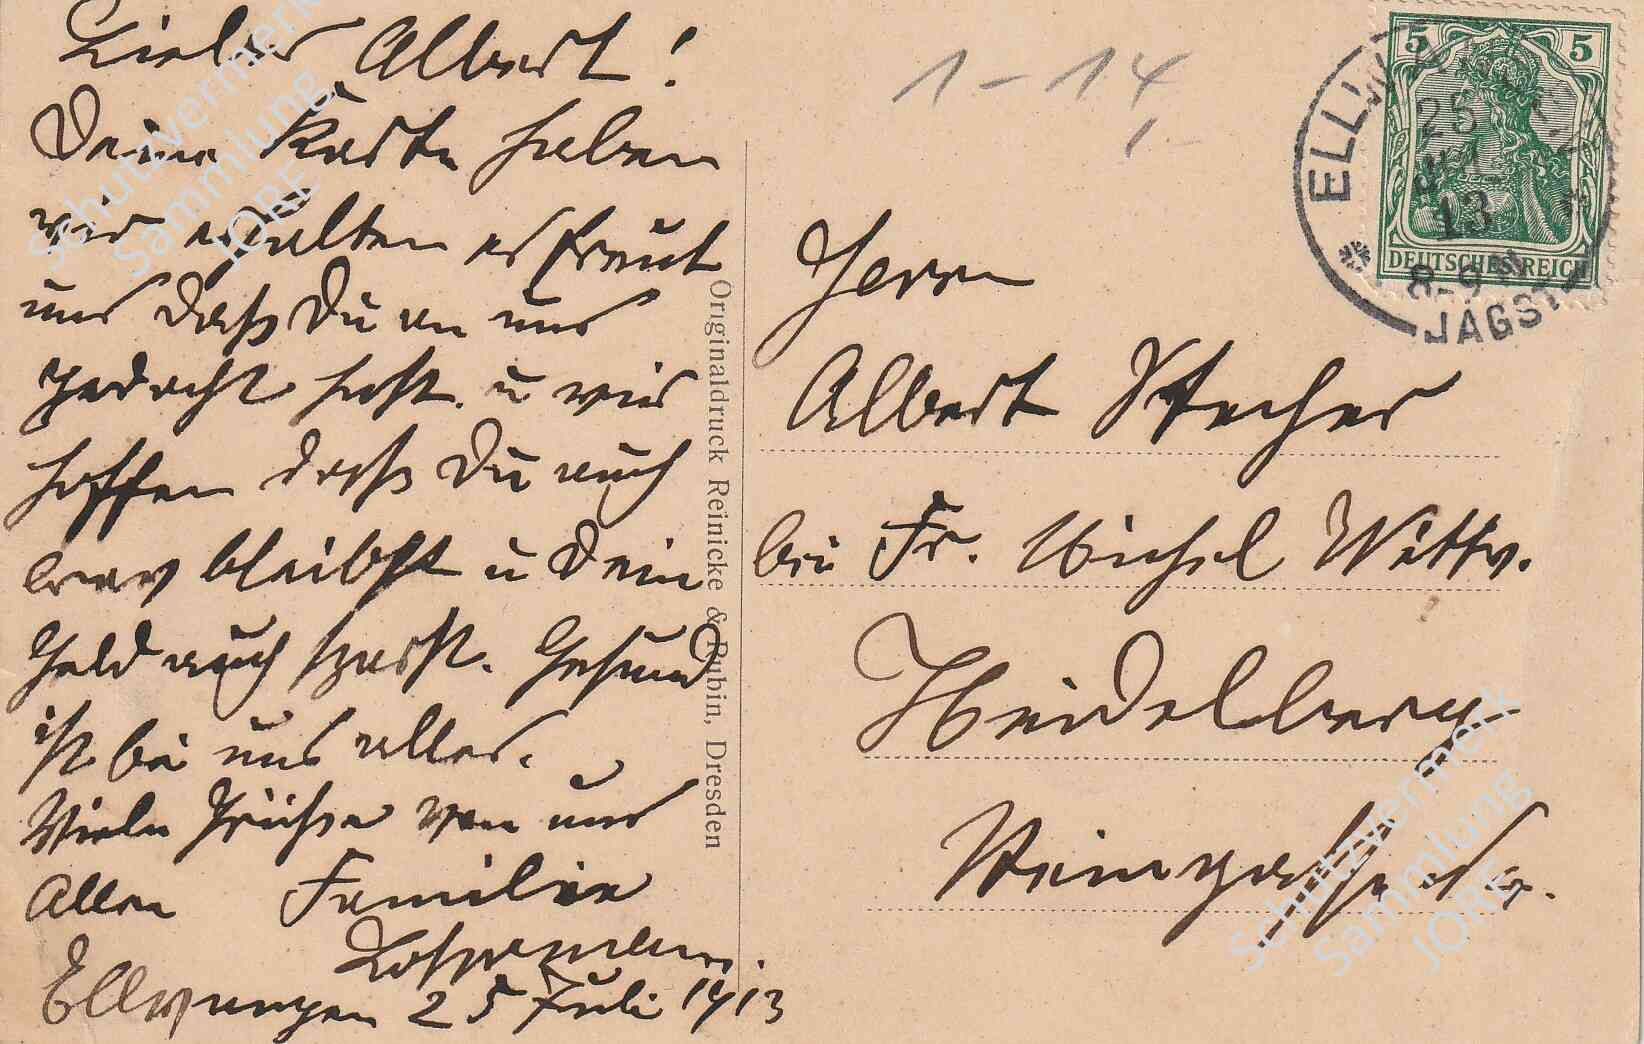 Lieber Albert!
Deine Karte haben
wir erhalten es freut
uns daß Du an uns
gedacht hast. u wir
hoffen daß Du auch
brav bleibst u Dein
Geld auch sparst. Gesund
ist bei uns alles.
Viele Grüße von uns
Allen Familie
Ellwangen 25 Juli 1913
Originaldruck Reinicke & Rubin, Dresden
1-14
1.-
5 5
DEUTSCHES REICH
ELLWANGEN
25 JUL
13
8-9
JAGST
Herrn
Albert Stecher
bei Fr. Michel Wittw.
Heidelberg
Schutzvermerk
Sammlung
JORE
Schutzvermerk
Sammlung
JORE